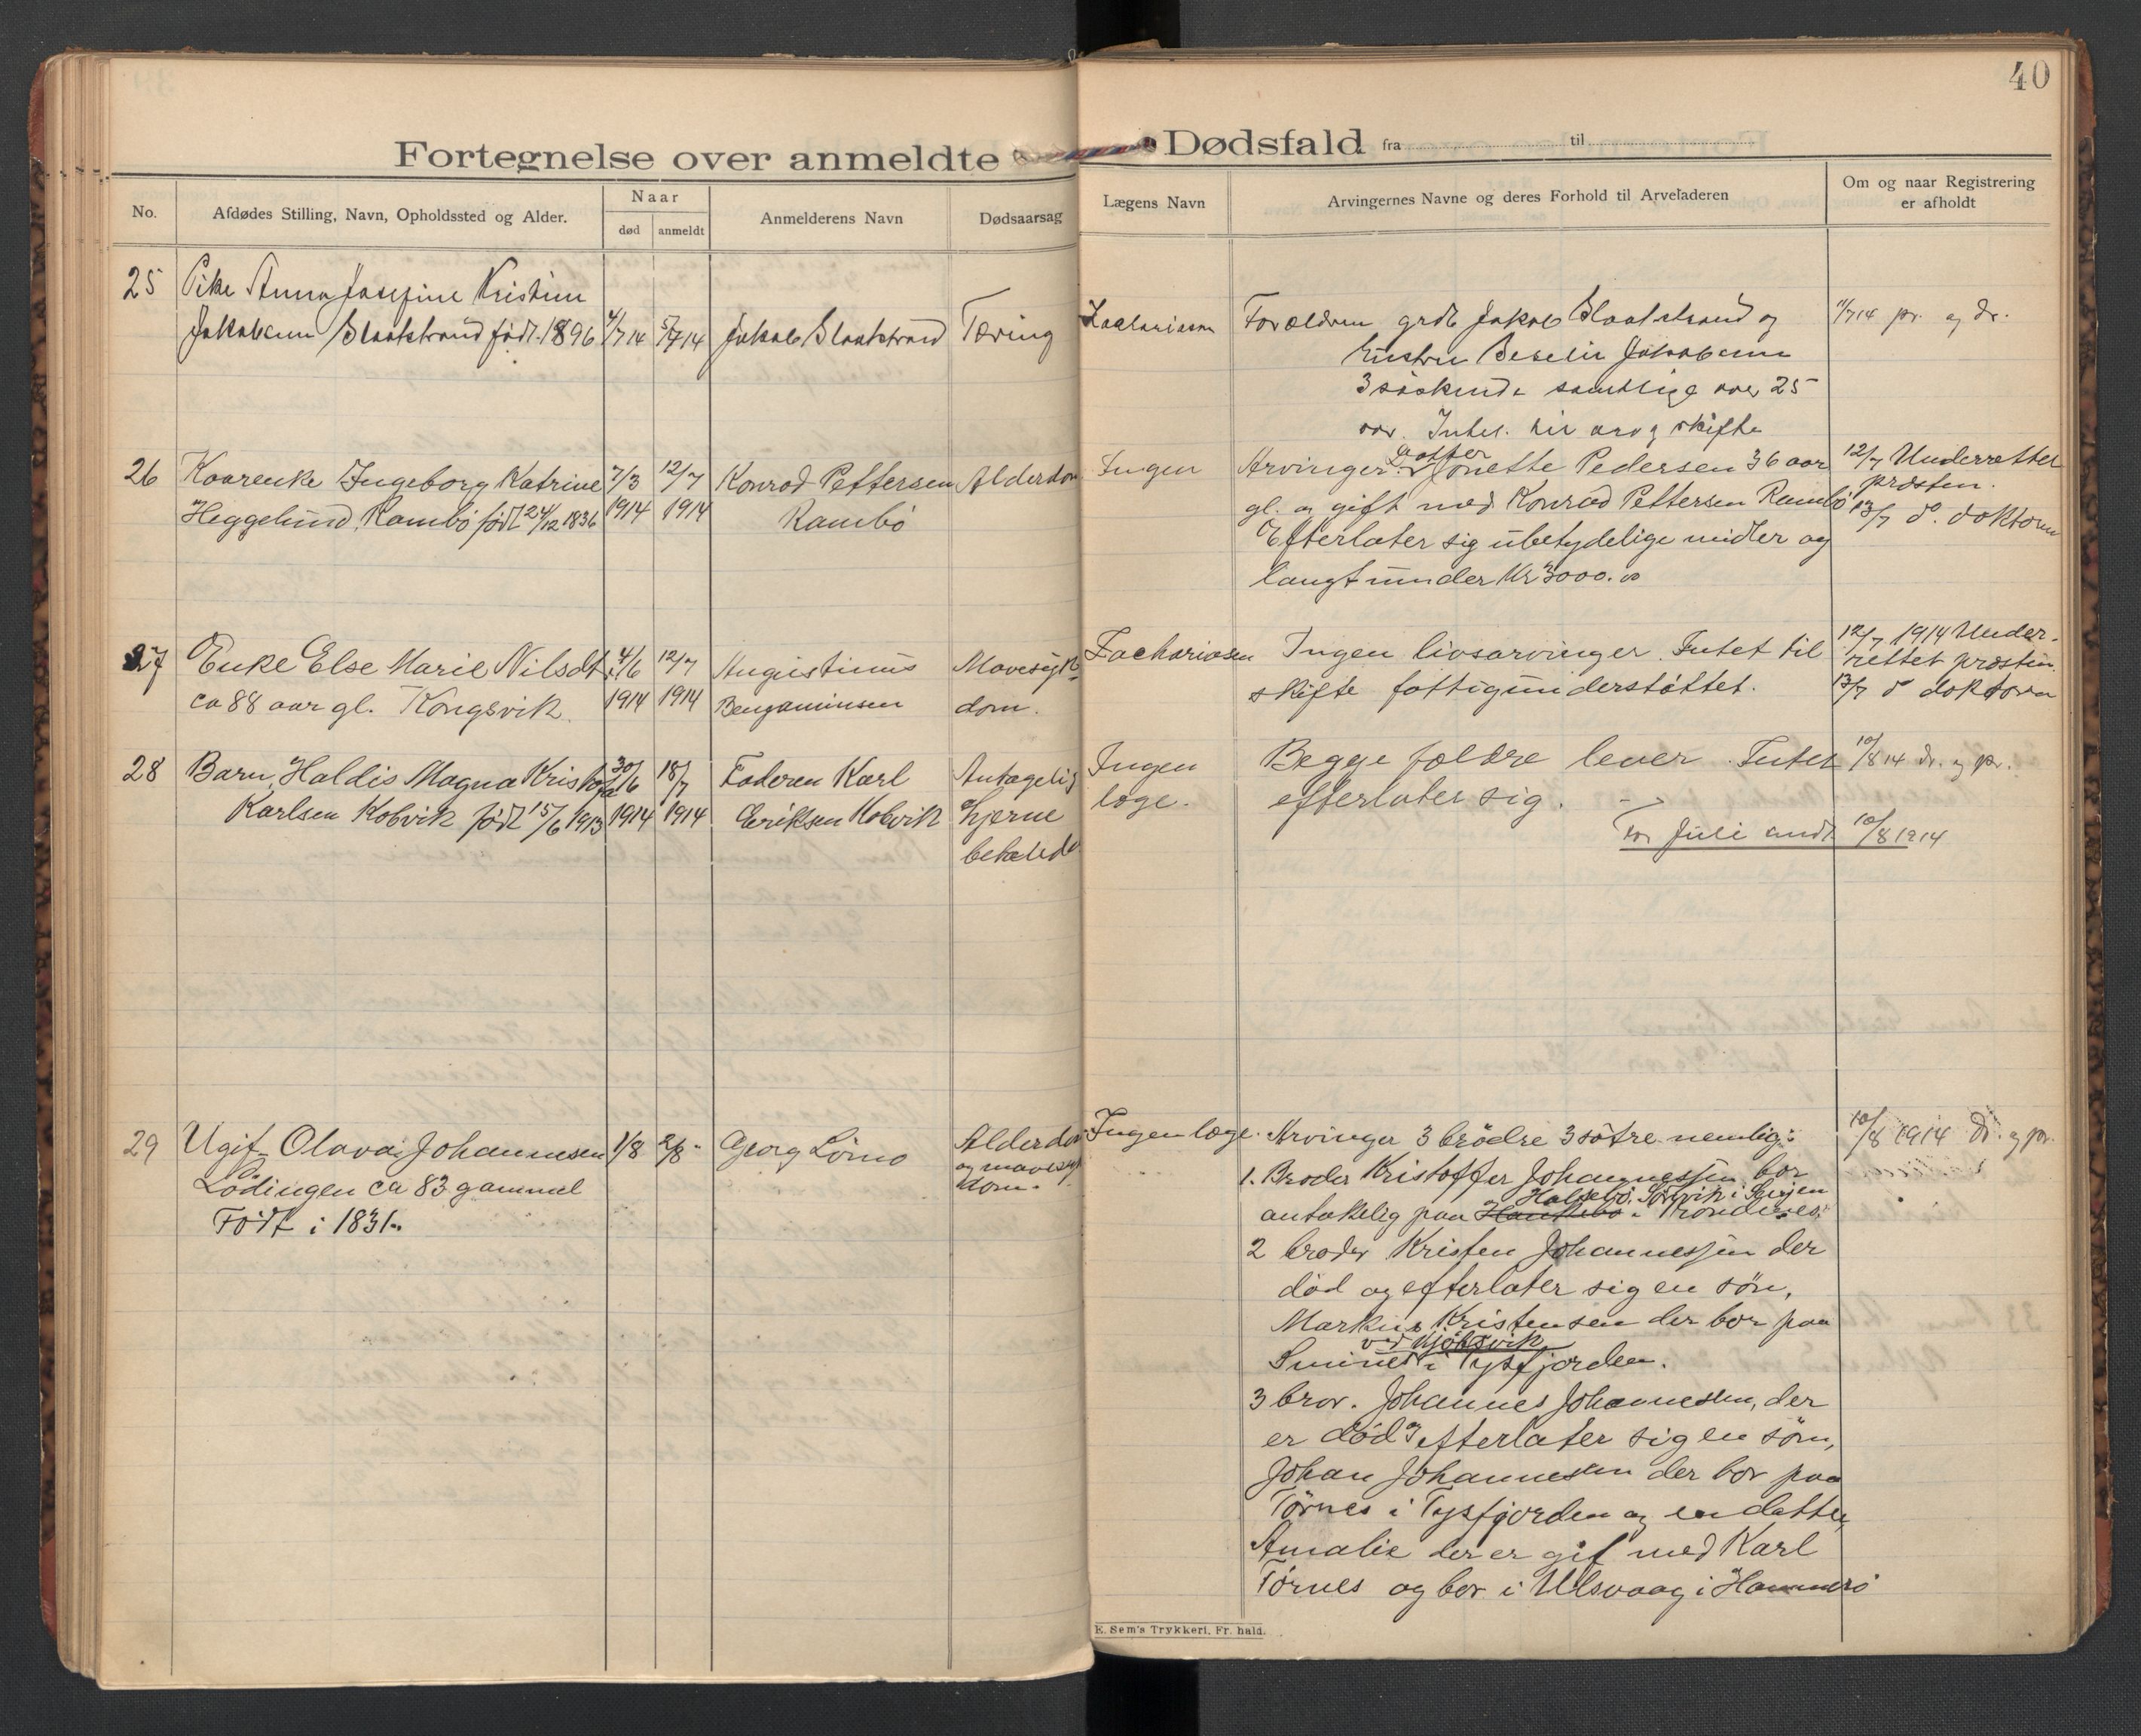 40
Fortegnelse over anmeldte Dødsfald fra til
No.
Afdødes Stilling, Navn, Opholdssted og Alder.
Naar
død
anmeldt
Anmelderens Navn
Dødsaarsag
Lægens Navn
Arvingernes Navne og deres Forhold til Arveladeren
Om og naar Registrering
er afholdt
25
Pike Anna Josefine Kristine
Jakobsen Slaatstrand født. 1896
4/7 14
5/7 14
Jakob Slaatstrand
Tæring
Zachariassen
Forældrene grdb Jakob Slaatstrand og
hustru Jakobsen
3 søskende samtlige over 25
aar. Intet til arv og skifte
11/7 14 pr. og dr.
26
Kaarenke Ingeborg Katrine
Heggelund, Rambö född 24/12 1836
7/3
1914
12/7
1914
Konrad Pettersen
Rambö
Alderdom
Ingen
datter
Arvinger: Jonette Pedersen 36 aar
gl. og gift med Konrad Pettersen Rambö
Efterlater sig ubetydelige midler og
langt under Kr 3000.00
12/7 Underrettet
præsten.
13/7 do. doktoren
27
Enke Else Marie Nilsdt.
ca 88 aar gl. Kongsvik.
4/6
1914
12/7
1914
Augustinus
Benjaminsen
Mavesyk-
dom.
Zachariasen
Ingen livsarvinger. Intet til
skifte fattigunderstöttet.
12/7 1914 Under-
rettet præsten.
13/7 do doktoren
28
Barn, Haldis Magna Kristofa
Karlsen Kobvik född 15/6 1913
30/6
1914
18/7
1914
Faderen Karl
Eriksen Kobvik
Antagelig
hjerne
betændelse
Ingen
læge.
Begge fældre lever. Intet
efterlater sig.
10/8 14 dr. og pr.
For Juli endt 10/8 1914
29
Ugift Olava Johannesen
Lødingen ca 83 gammel
Född i 1831.
1/8
2/8
Georg Lömo
Alderdom
og mavesyk
dom.
Ingen læge.
Arvinger 3 brödre 3 söstre nemlig:
1. Broder Kristoffer Johannessen bor
Halsebö, Sörvik i Senjen
antakelig paa i Trondenes.
2 broder Kristen Johannessen der
död og efterlater sig en sön,
Markus Kristensen der bor paa
ved Kjöbsvik
i Tysfjorden.
3 bror. Johannes Johannessen, der
er död efterlater sig en sön,
Johan Johannessen der bor paa
Törnes i Tysfjorden og en datter,
Amalie der er gift med Karl
Törnes og bor i Ulsvaag i Hammerö
10/8 1914 dr. og pr.
E. Sem's Trykkeri. Fr.hald.